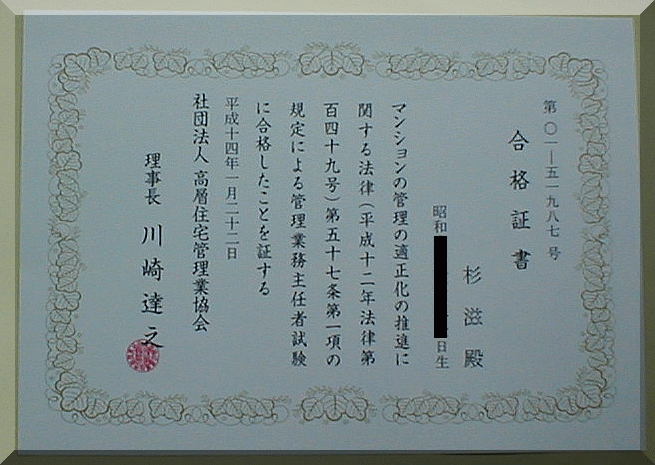 第〇一―五一九八七号
合格証書
杉 滋 殿
昭和 日生
マンションの管理の適正化の推進に
関する法律(平成十二年法律第
百四十九号)第五十七条第一項の
規定による管理業務主任者試験
に合格したことを証する
平成十四年一月二十二日
社団法人 高層住宅管理業協会
理事長 川崎達之